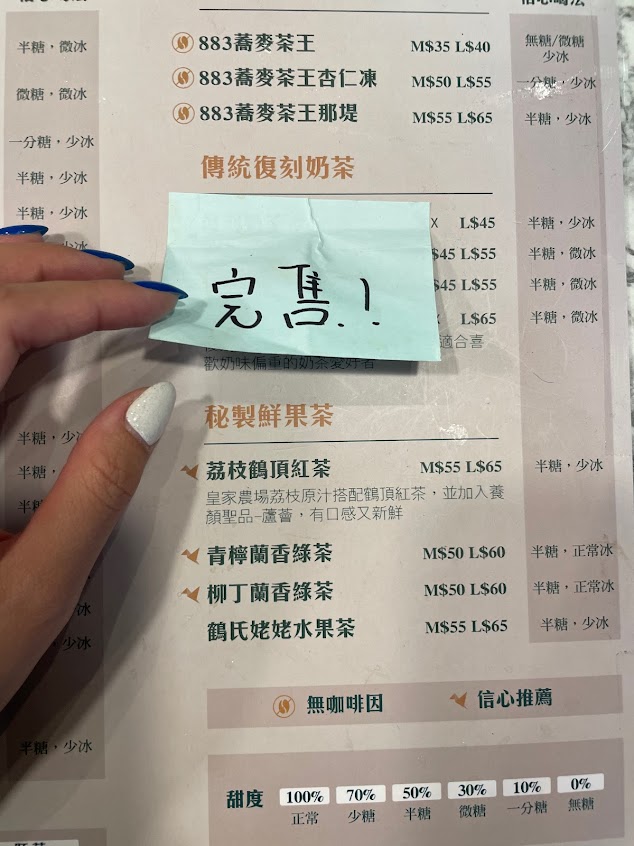 半糖，微冰
微糖，微冰
一分糖，少冰
半糖，少冰
半糖，少冰
少冰
883蕎麥茶王 M$35 L$40 無糖/微糖
少冰
883蕎麥茶王杏仁凍 M$50 L$55 一分糖，少冰
883蕎麥茶王那堤 M$55 L$65 半糖，少冰
傳統復刻奶茶
X L$45 半糖，少冰
$45 L$55 半糖，微冰
$45 L$55 半糖，微冰
L$65 半糖，微冰
完售.!
適合喜
歡奶味偏重的奶茶愛好者
秘製鮮果茶
半糖，少
半糖，
半糖
荔枝鶴頂紅茶 M$55 L$65 半糖，少冰
皇家農場荔枝原汁搭配鶴頂紅茶，並加入養
顏聖品–蘆薈，有口感又新鮮
青檸蘭香綠茶 M$50 L$60 半糖，正常冰
柳丁蘭香綠茶 M$50 L$60 半糖，正常冰
鶴氏姥姥水果茶 M$55 L$65 半糖，少冰
少冰
半糖，少冰
無咖啡因 信心推薦
甜度 100% 70% 50% 30% 10% 0%
正常 少糖 半糖 微糖 一分糖 無糖